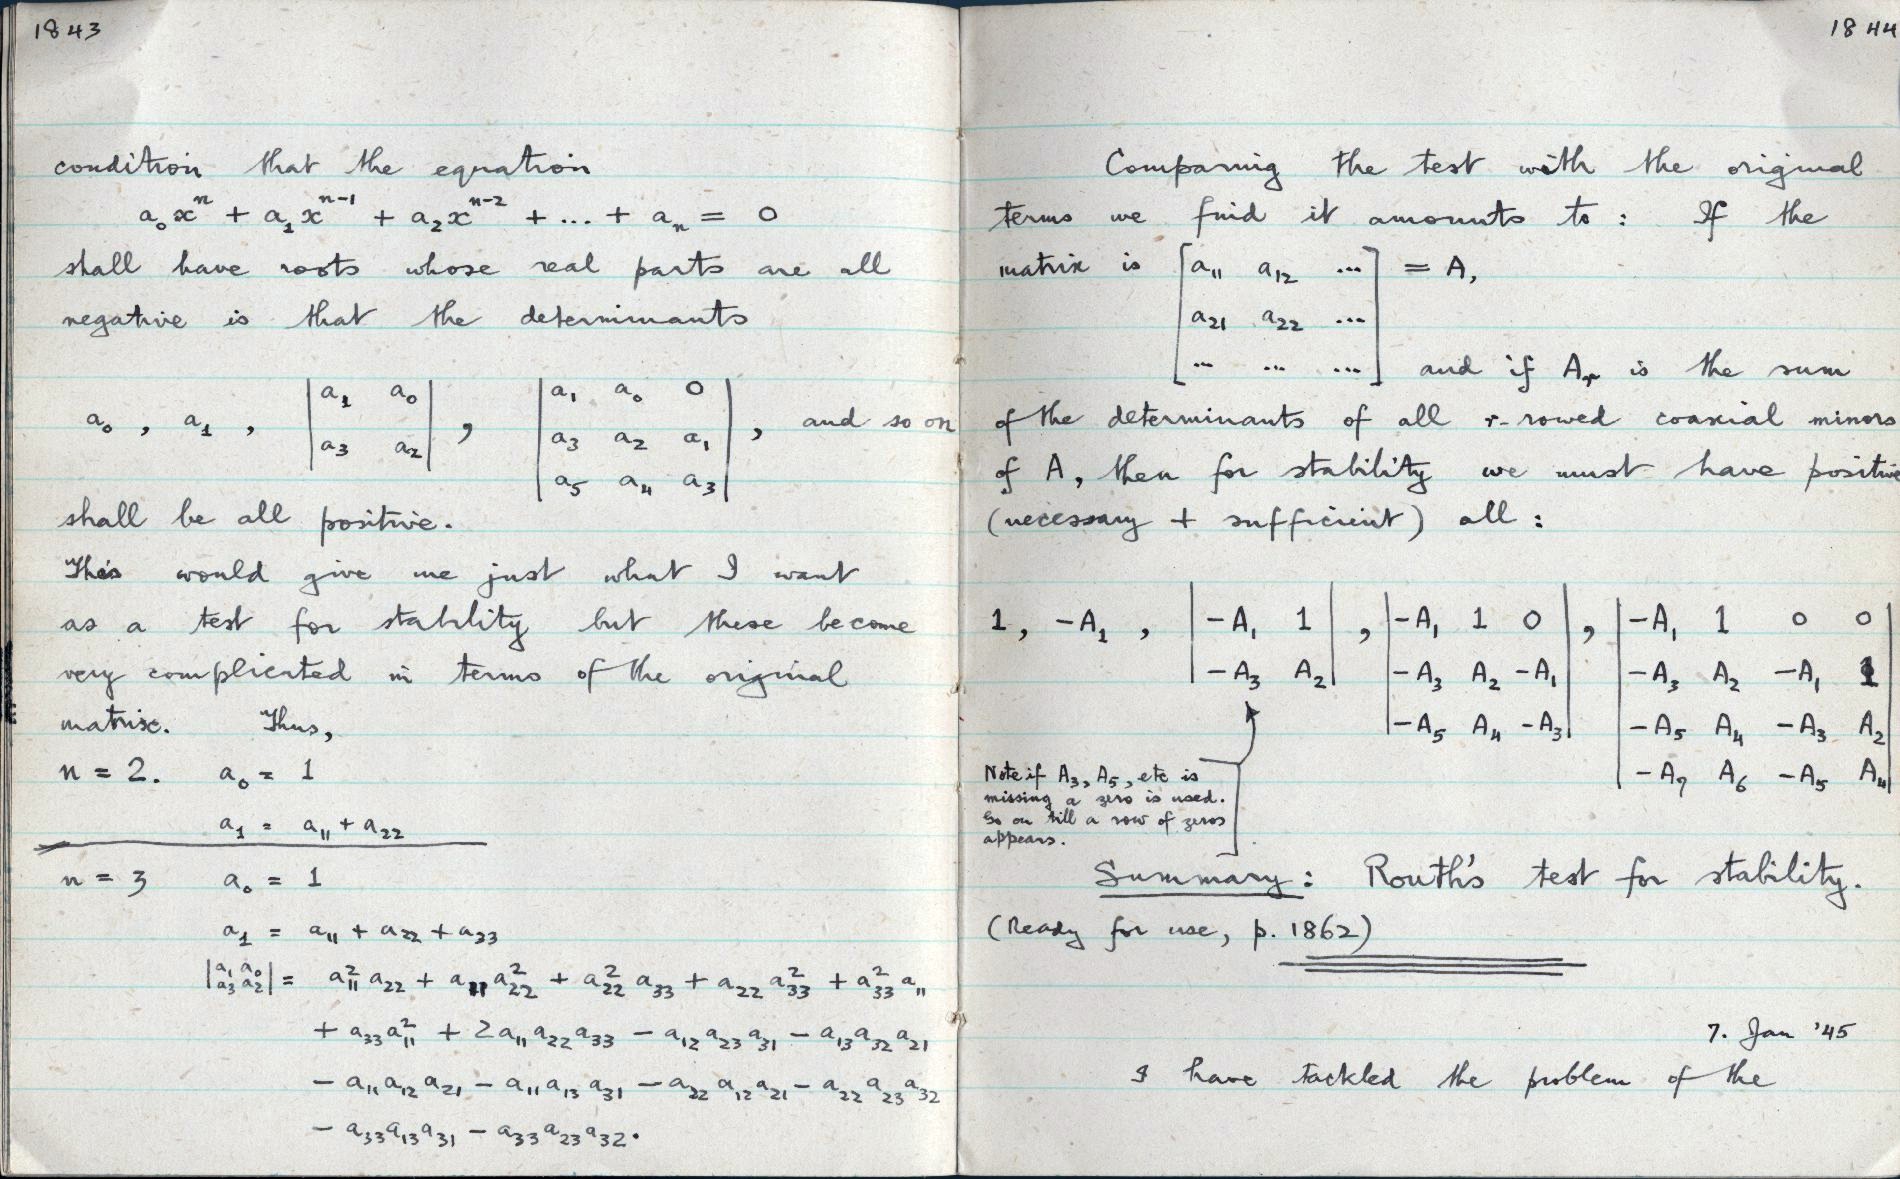 1843
condition that the equation
a₀xⁿ + a₁xⁿ⁻¹ + a₂xⁿ⁻² + ... + aₙ = 0
shall have roots whose real parts are all
negative is that the determinants
a₀ , a₁ , | a₁ a₀ | , | a₁ a₀ 0 | , and so on
| a₃ a₂ | | a₃ a₂ a₁ |
| a₅ a₄ a₃ |
shall be all positive.
This would give me just what I want
as a test for stability but these become
very complicated in terms of the original
matrix. Thus,
n = 2. a₀ = 1
a₁ = a₁₁ + a₂₂
n = 3 a₀ = 1
a₁ = a₁₁ + a₂₂ + a₃₃
| a₁ a₀ |
| a₃ a₂ | = a₁₁²a₂₂ + a₁₁a₂₂² + a₂₂²a₃₃ + a₂₂a₃₃² + a₃₃²a₁₁
+ a₃₃a₁₁² + 2a₁₁a₂₂a₃₃ − a₁₂a₂₃a₃₁ − a₁₃a₃₂a₂₁
− a₁₁a₁₂a₂₁ − a₁₁a₁₃a₃₁ − a₂₂a₁₂a₂₁ − a₂₂a₂₃a₃₂
− a₃₃a₁₃a₃₁ − a₃₃a₂₃a₃₂.
1844
Comparing the test with the original
terms we find it amounts to: If the
matrix is [ a₁₁ a₁₂ ... ] = A,
[ a₂₁ a₂₂ ... ]
[ ... ... ... ] and if Aᵣ is the sum
of the determinants of all r-rowed coaxial minors
of A, then for stability we must have positive
(necessary + sufficient) all:
1 , −A₁ , | −A₁ 1 | , | −A₁ 1 0 | , | −A₁ 1 0 0 |
| −A₃ A₂ | | −A₃ A₂ −A₁ | | −A₃ A₂ −A₁ 1 |
| −A₅ A₄ −A₃ | | −A₅ A₄ −A₃ A₂ |
| −A₇ A₆ −A₅ A₄ |
Note if A₃, A₅, etc is
missing a zero is used.
So on till a row of zeros
appears.
Summary: Routh's test for stability.
(Ready for use, p. 1862)
7. Jan '45
I have tackled the problem of the